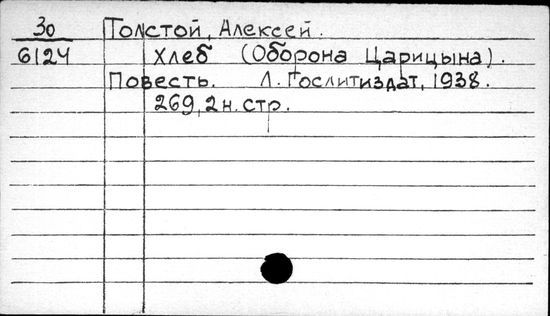 30 Толстой, Алексей.
6124 Хлеб (Оборона Царицына).
Повесть. Л. Гослитиздат, 1938.
269, 2 н. стр.